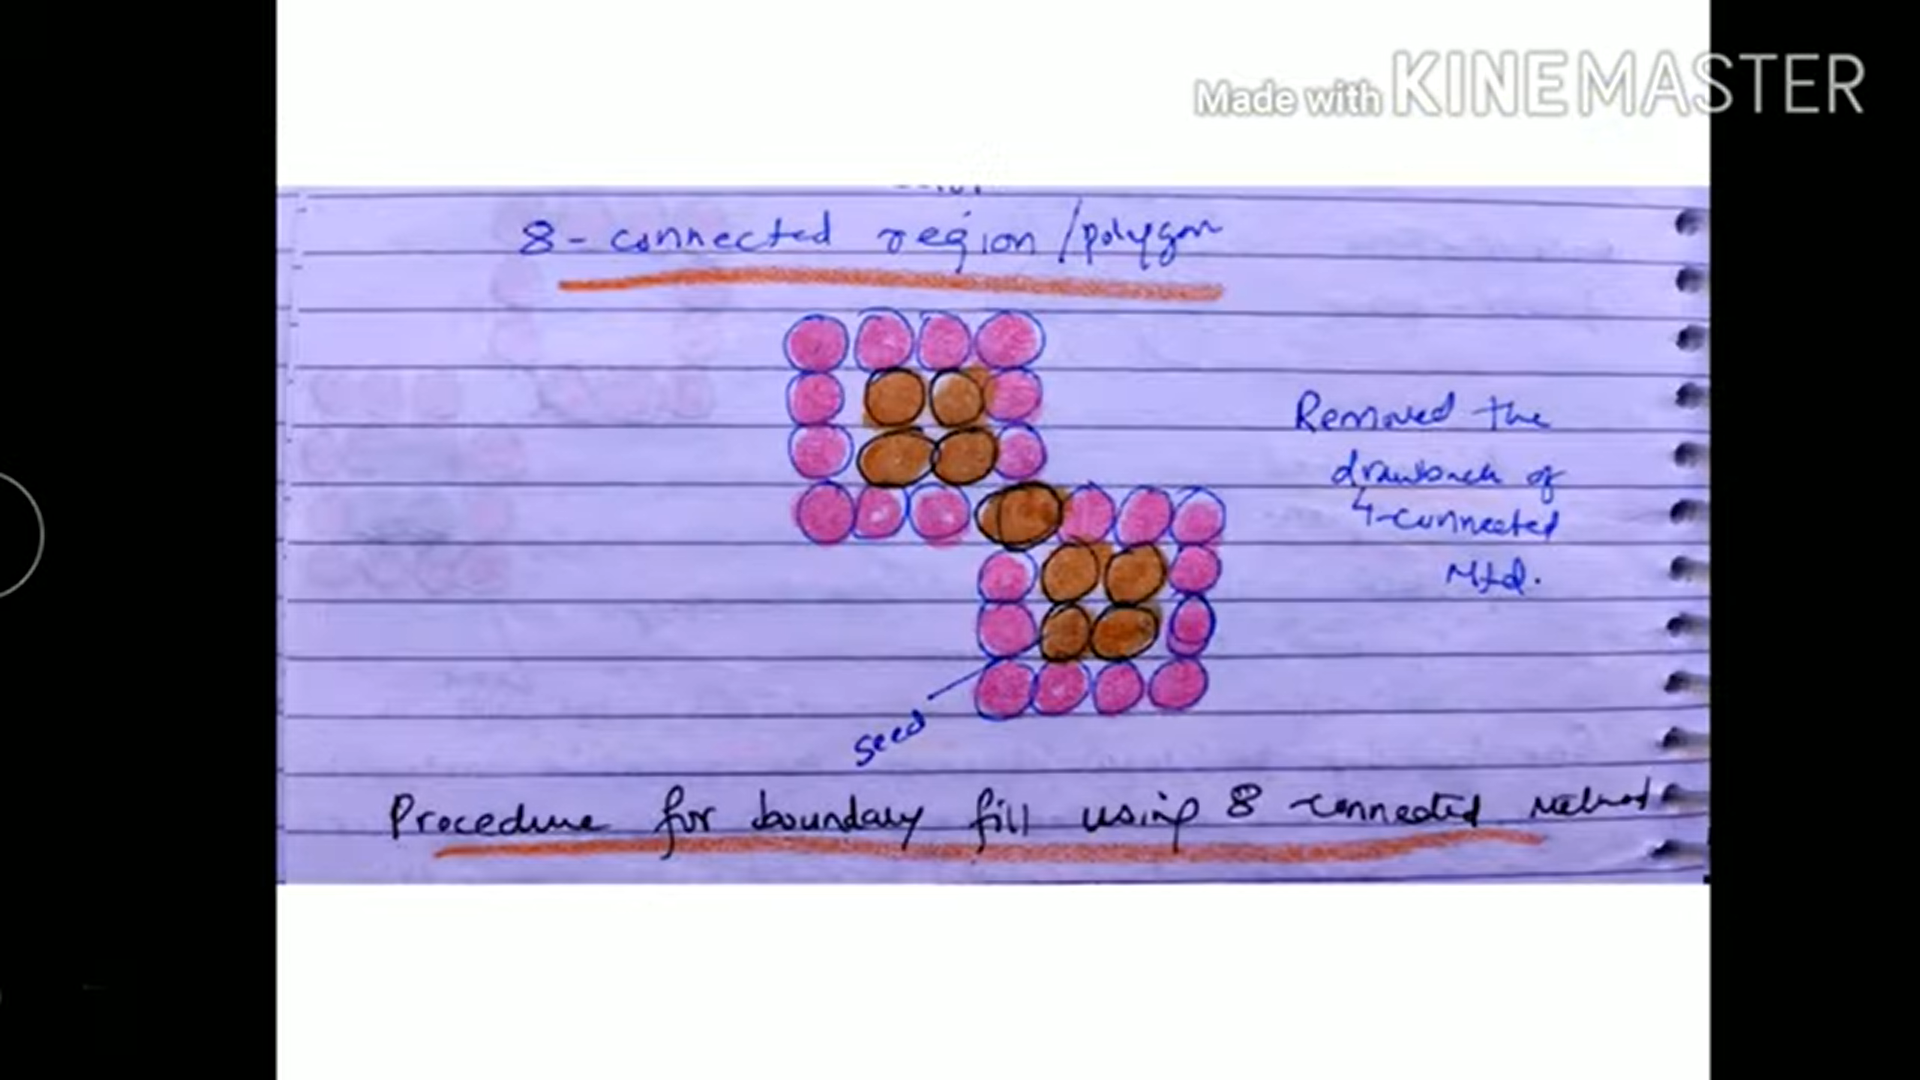 Made with KINEMASTER
8-connected region/polygon
Removed the
drawback of
4-connected
Mtd.
Seed
Procedure for boundary fill using 8-connected method